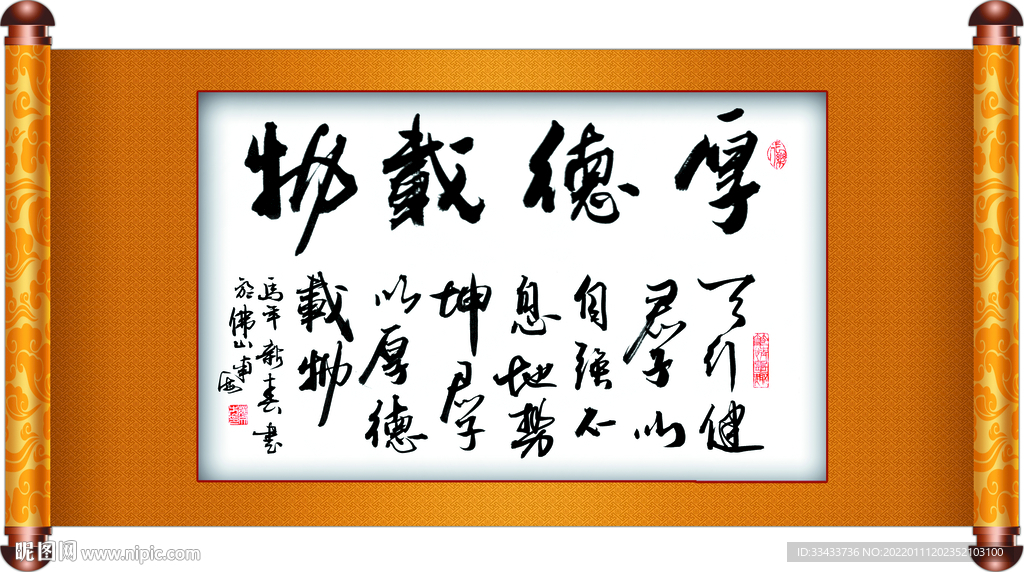 厚德載物
天行健
君子以
自強不
息地勢
坤君子
以厚德
載物
馬年新春書
於佛山南海
昵图网 www.nipic.com
ID:33433736 NO:20220111202352103100